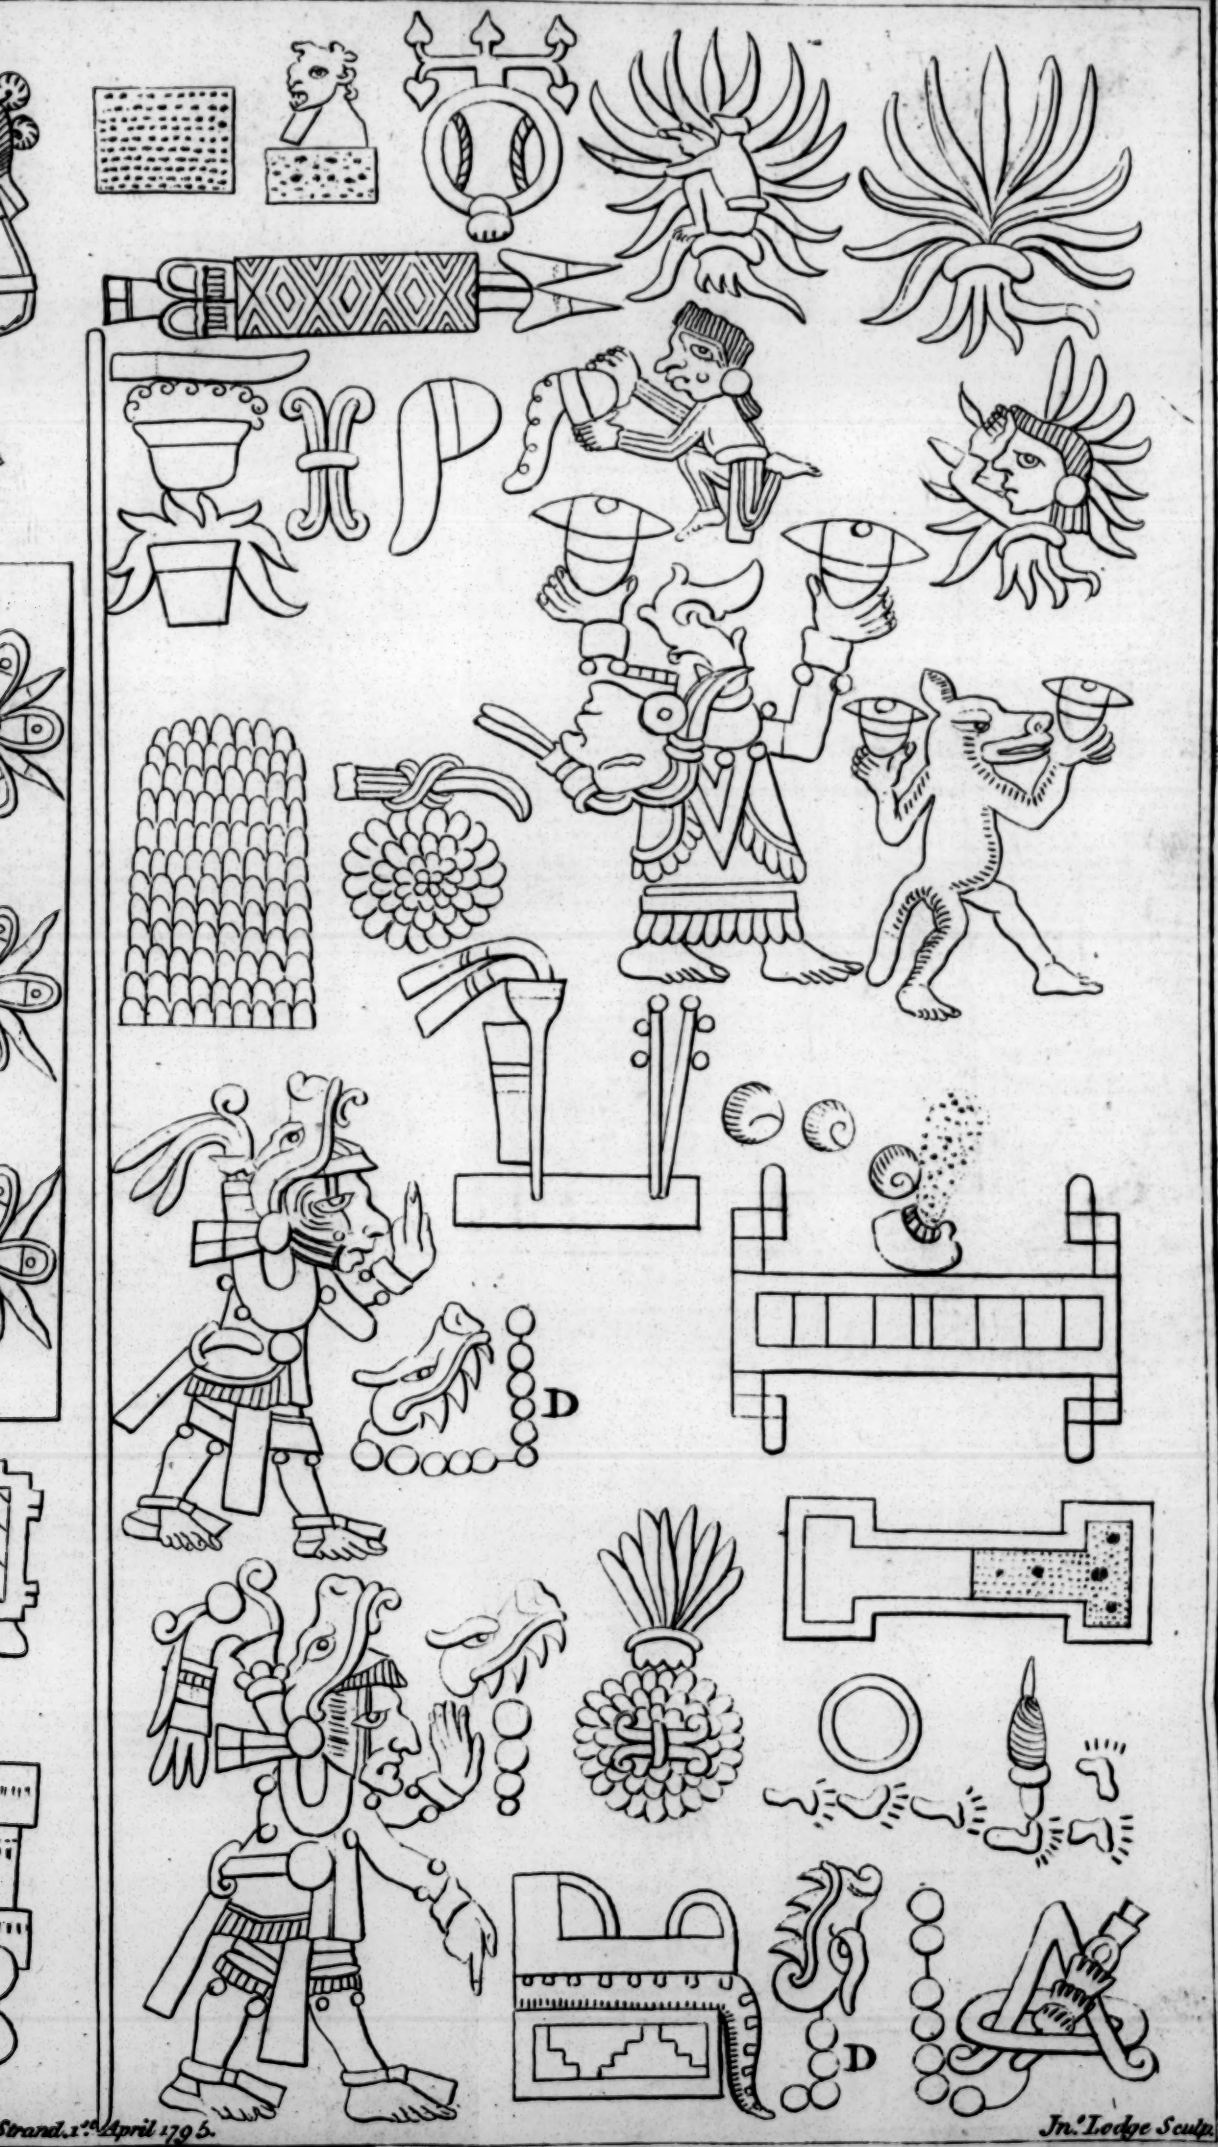 D
D
Strand. 1st. April 1795.
Jno. Lodge Sculp.